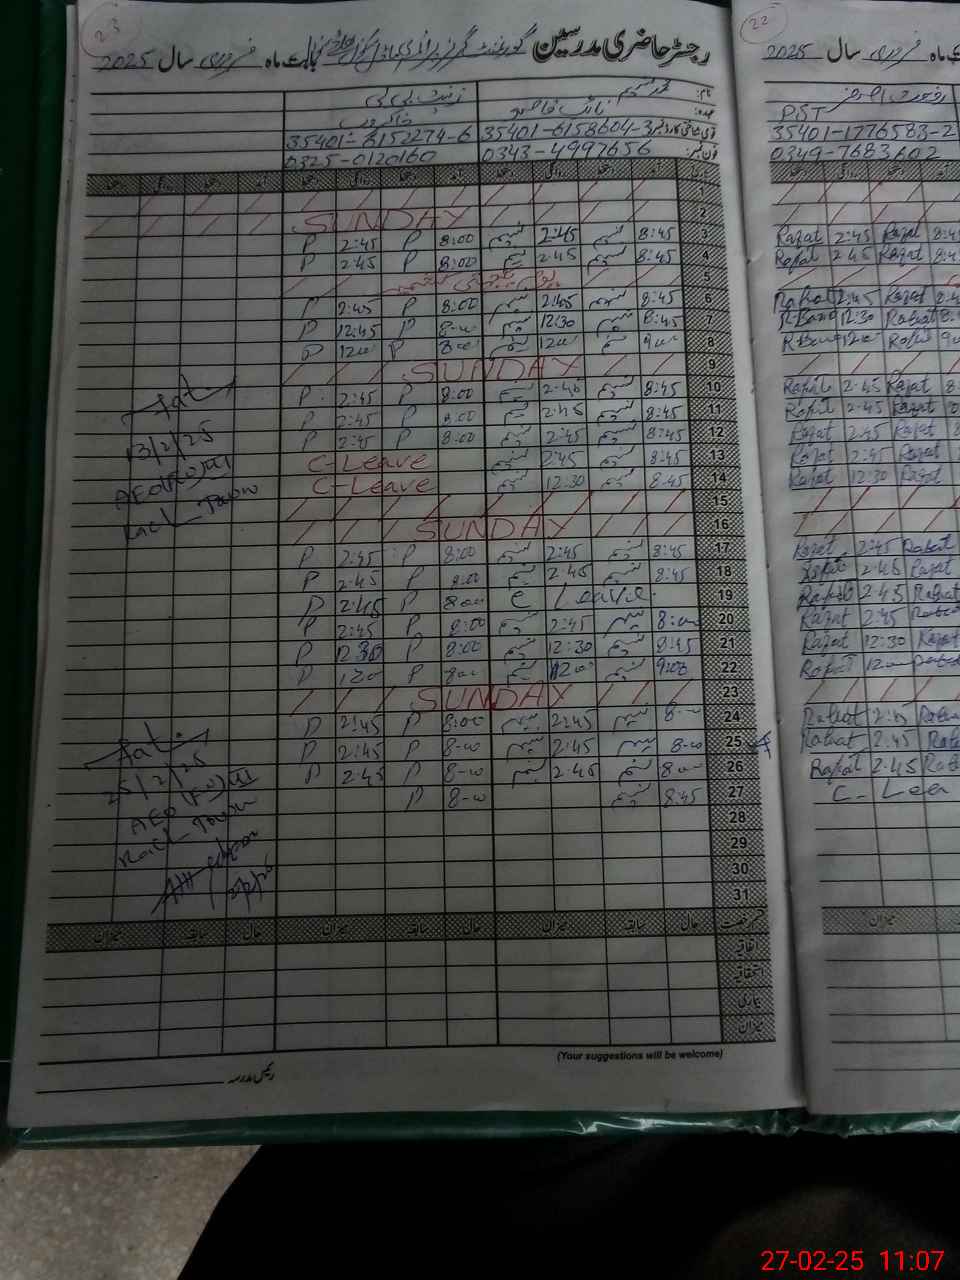 23
رجسٹر حاضری مدرسین گورنمنٹ گرلز پرائمری بابت ماہ فروری سال 2025
نام: محمد نسیم زینب بی بی
عہدہ: نائب قاصد خاکروب
35401-6158604-3 35401-6152274-6
فون نمبر: 0343-4997656 0325-0120160
1
2 SUNDAY
3 8:45 نسیم 2:45 نسیم 8:00 P 2:45 P
4 8:45 نسیم 2:45 نسیم 8:00 P 2:45 P
5
6 8:45 نسیم 2:45 نسیم 8:00 P 2:45 P
7 8:45 نسیم 12:30 نسیم 8-00 P 12:45 P
8 9:00 نسیم 1200 نسیم 800 P 1200 P
9 SUNDAY
10 8:45 نسیم 2:40 نسیم 8:00 P 2:45 P
11 8:45 نسیم 2:45 نسیم 8:00 P 2:45 P
12 8:45 نسیم 2:45 نسیم 8:00 P 2:45 P
13 8:45 نسیم 2:45 نسیم C-Leave
14 8:45 نسیم 12:30 نسیم C-Leave
15
16 SUNDAY
17 8:45 نسیم 2:45 نسیم 8:00 P 2:45 P
18 8:45 نسیم 2:45 نسیم 8:00 P 2:45 P
19 C Leave 800 P 2:45 P
20 8:00 نسیم 2:45 نسیم 8:00 P 2:45 P
21 8:45 نسیم 12:30 نسیم 8:00 P 1230 P
22 9:00 نسیم 1200 نسیم 800 P 1200 P
23 SUNDAY
24 8-00 نسیم 2:45 نسیم 8:00 P 2:45 P
25 8-00 نسیم 2:45 نسیم 8-00 P 2:45 P
26 800 نسیم 2:45 نسیم 8-00 P 2:45 P
27 8:45 نسیم 8-00 P
28
29
30
31
13/2/25
AEO (F) III
25/2/25
AEO (F) III
قسم رخصت حال سابقہ میزان حال سابقہ میزان حال سابقہ میزان
اتفاقیہ
استحقاقیہ
بیماری
میزان
(Your suggestions will be welcome)
رئیس مدرسہ
22
ماہ فروری سال 2025
PST
35401-1776583-2
0349-7683602
Rafat 2:45 Rafat 8:45
Rafat 2:45 Rafat 8:4
Rafat 2:45 Rafat
R.Bano 12:30 Rafat
R.Bano 1200 Rafat
Rafat 2:45 Rafat 8
Rafat 2:45 Rafat
Rafat 2:45 Rafat
Rafat 2:45 Rafat
Rafat 12:30 Rafat
Rafat 2:45 Rafat
Rafat 2:45 Rafat
Rafat 2:45 Rafat
Rafat 2:45 Rafat
Rafat 12:30 Rafat
Rafat 1200 Rafat
Rafat 2:45 Rafat
Rafat 2:45 Rafat
Rafat 2:45 Rafat
C-Lea
میزان
27-02-25 11:07